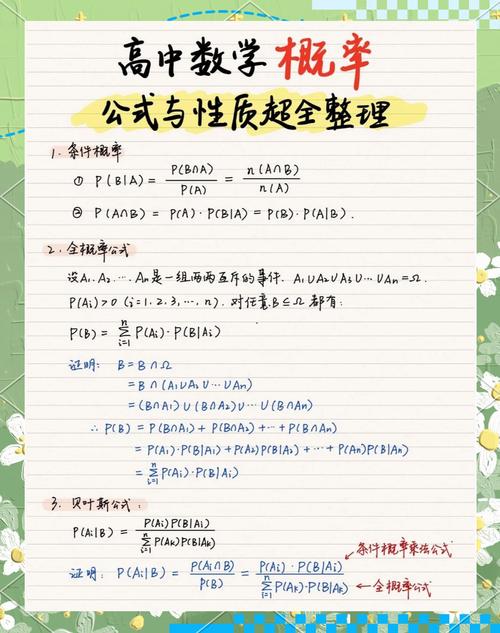 高中数学 概率
公式与性质超全整理
1. 条件概率
① P(B|A) = P(B∩A)/P(A) = n(A∩B)/n(A)
② P(A∩B) = P(A)·P(B|A) = P(B)·P(A|B).
2. 全概率公式
设A₁.A₂.…An是一组两两互斥的事件. A₁∪A₂∪A₃∪…∪An=Ω.
P(Ai)>0 (i=1.2.3,…,n). 对任意B⊆Ω 都有:
P(B) = ∑ᵢ₌₁ⁿ P(Ai)·P(B|Ai)
证明: B=B∩Ω
=B∩(A₁∪A₂∪…∪An)
=(B∩A₁)∪(B∩A₂)∪…∪(B∩An)
∴ P(B) = P(B∩A₁)+P(B∩A₂)+…+P(B∩An)
=P(A₁)·P(B|A₁)+P(A₂)P(B|A₂)+…+P(An)P(B|An)
=∑ᵢ₌₁ⁿ P(Ai)·P(B|Ai)
3. 贝叶斯公式:
P(Ai|B) = P(Ai)P(B|Ai)/∑ᵢ₌₁ⁿ P(Ak)P(B|Ak)
条件概率乘法公式
证明: P(Ai|B) = P(Ai∩B)/P(B) = P(Ai)·P(B|Ai)/∑ᵢ₌₁ⁿ P(Ak)·P(B|Ak) ←全概率公式